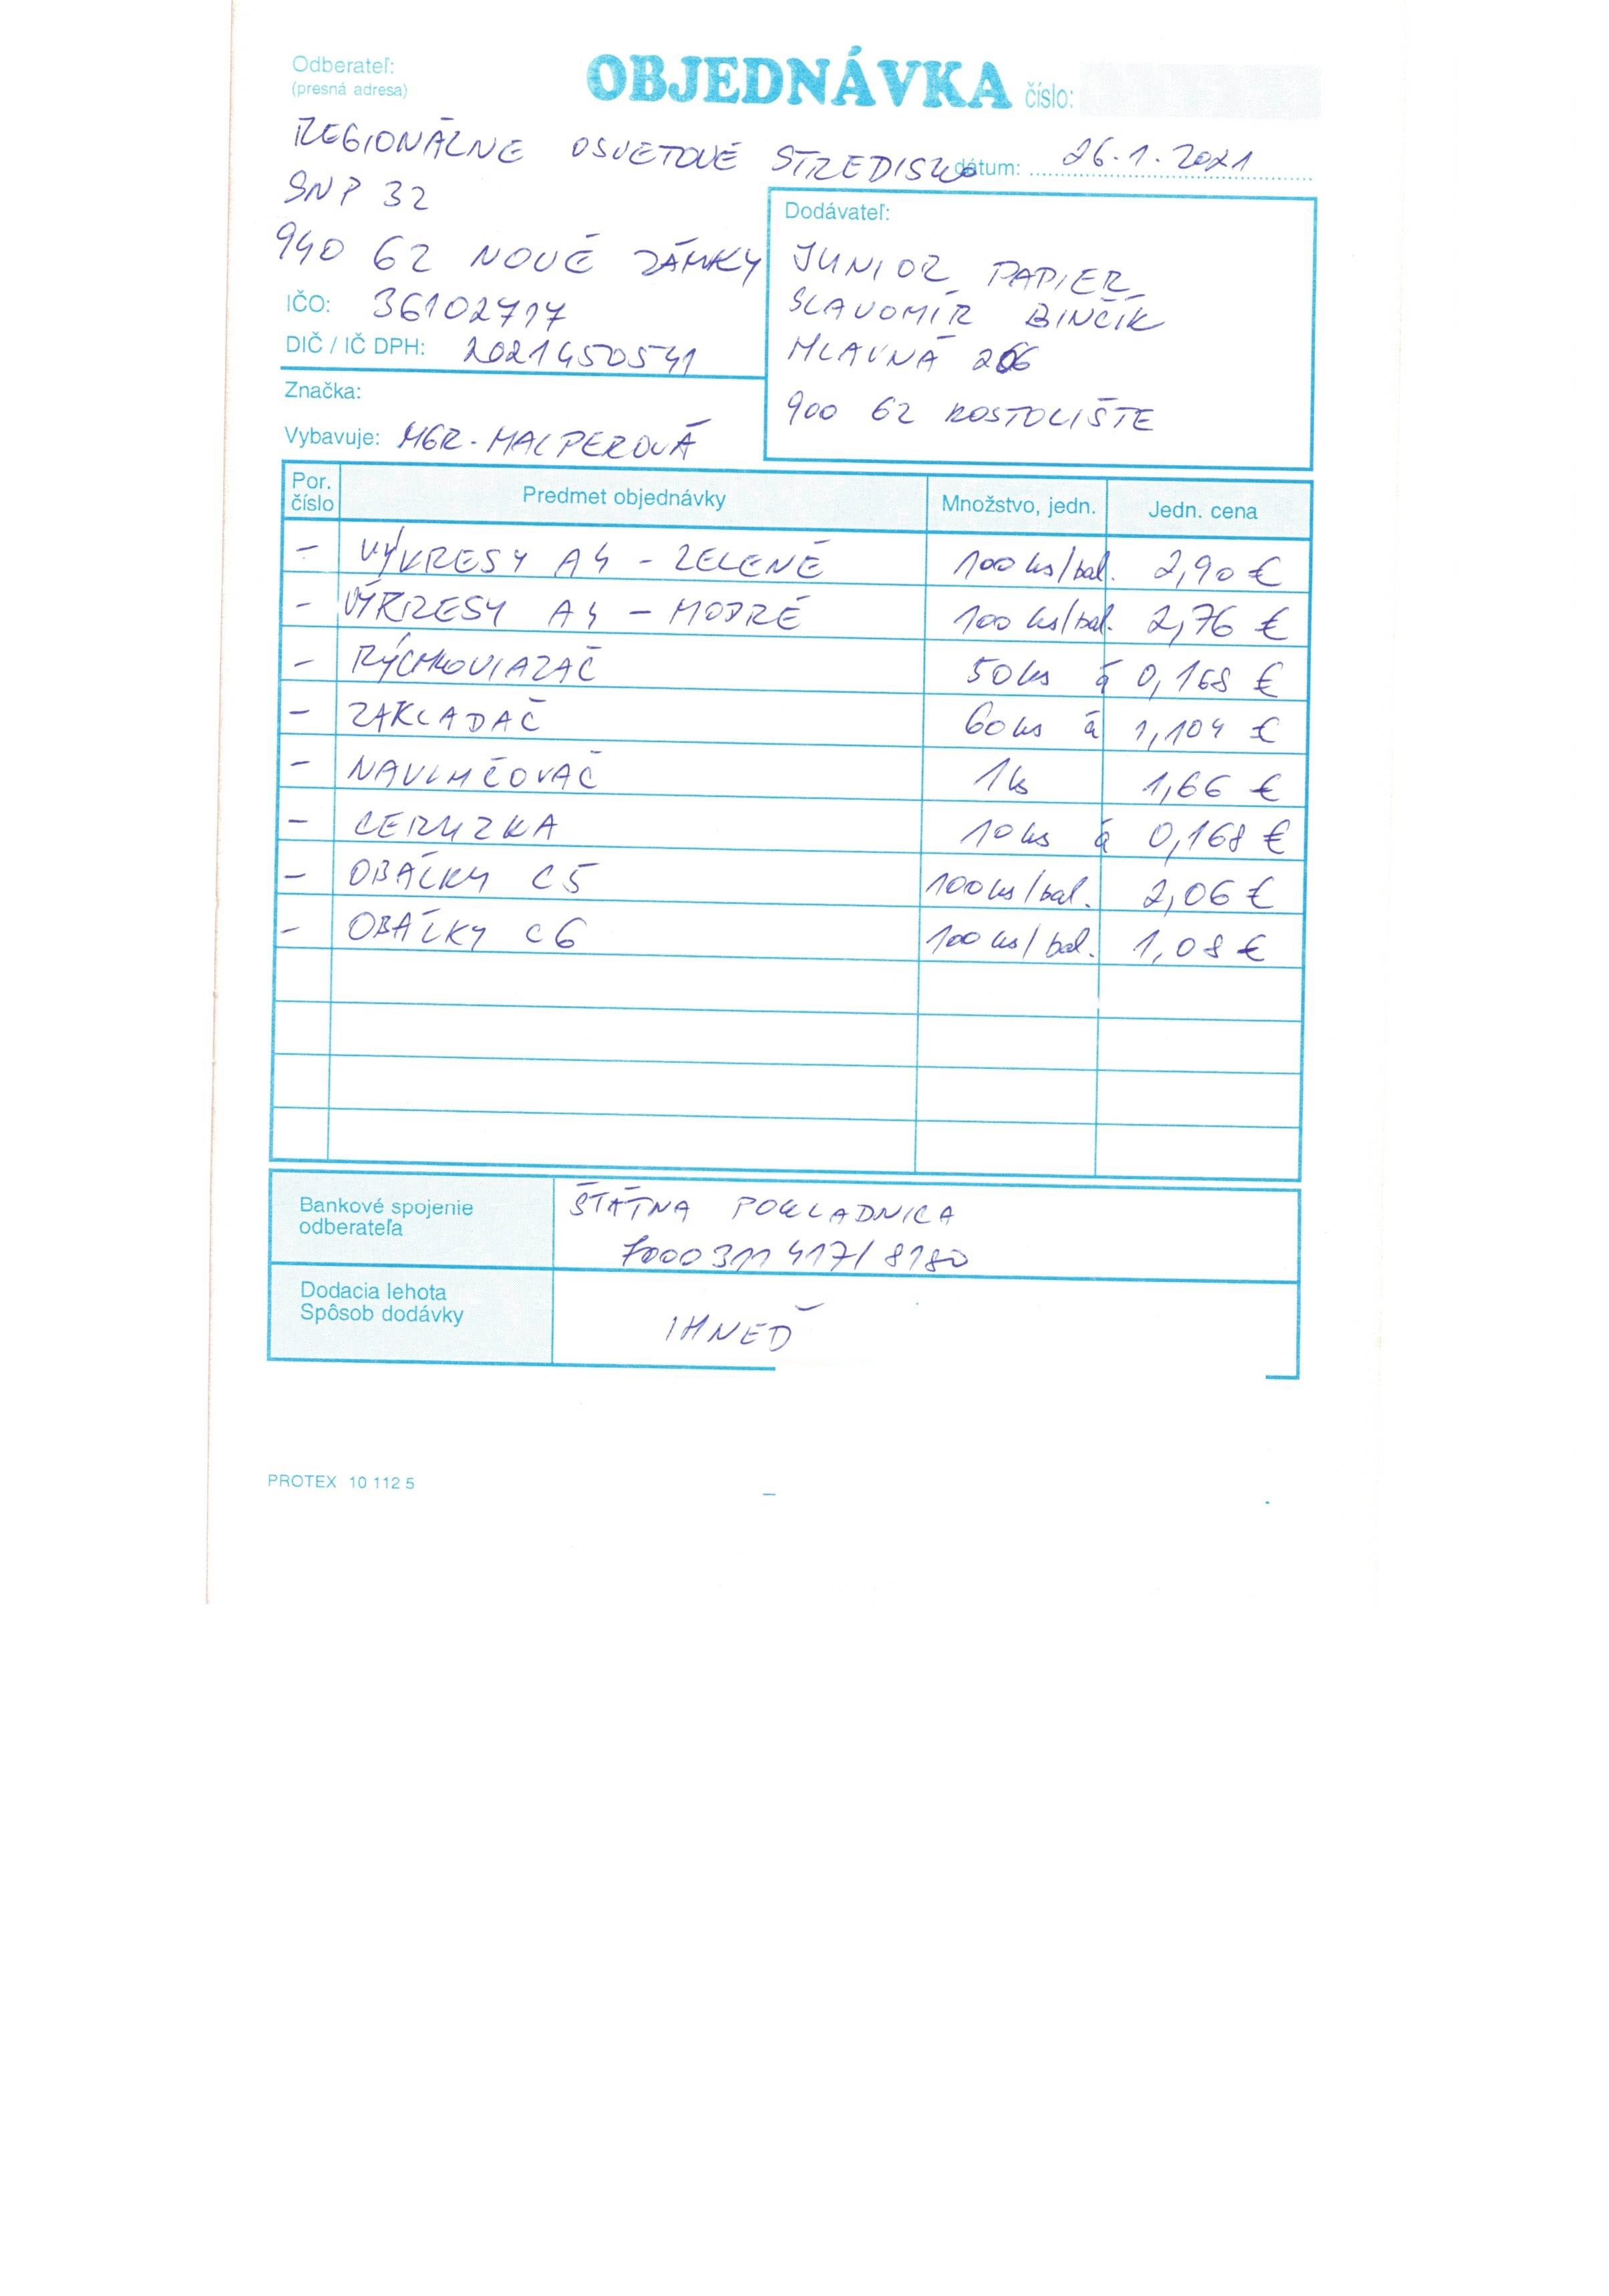 Odberateľ:
(presná adresa)
OBJEDNÁVKA číslo:
REGIONÁLNE OSVETOVÉ STREDISKO
dátum: 26.1.2021
SNP 32
940 62 NOVÉ ZÁMKY
IČO: 36102717
DIČ / IČ DPH: 2021450541
Značka:
Vybavuje: MGR. HALPEROVÁ
Dodávateľ:
JUNIOR PAPIER
SLAVOMÍR BINČÍK
HLAVNÁ 206
900 62 KOSTOLIŠTE
Por. číslo Predmet objednávky Množstvo, jedn. Jedn. cena
– VÝKRESY A4 - ZELENÉ 100 ks/bal. 2,90 €
– VÝKRESY A4 - MODRÉ 100 ks/bal. 2,76 €
– RÝCHLOVIAZAČ 50 ks á 0,168 €
– ZAKLADAČ 60 ks á 1,104 €
– NAVLHČOVAČ 1 ks 1,66 €
– CERUZKA 10 ks á 0,168 €
– OBÁLKY C5 100 ks/bal. 2,06 €
– OBÁLKY C6 100 ks/bal. 1,08 €
Bankové spojenie
odberateľa
ŠTÁTNA POKLADNICA
7000311417/8180
Dodacia lehota
Spôsob dodávky
IHNEĎ
PROTEX 10 112 5